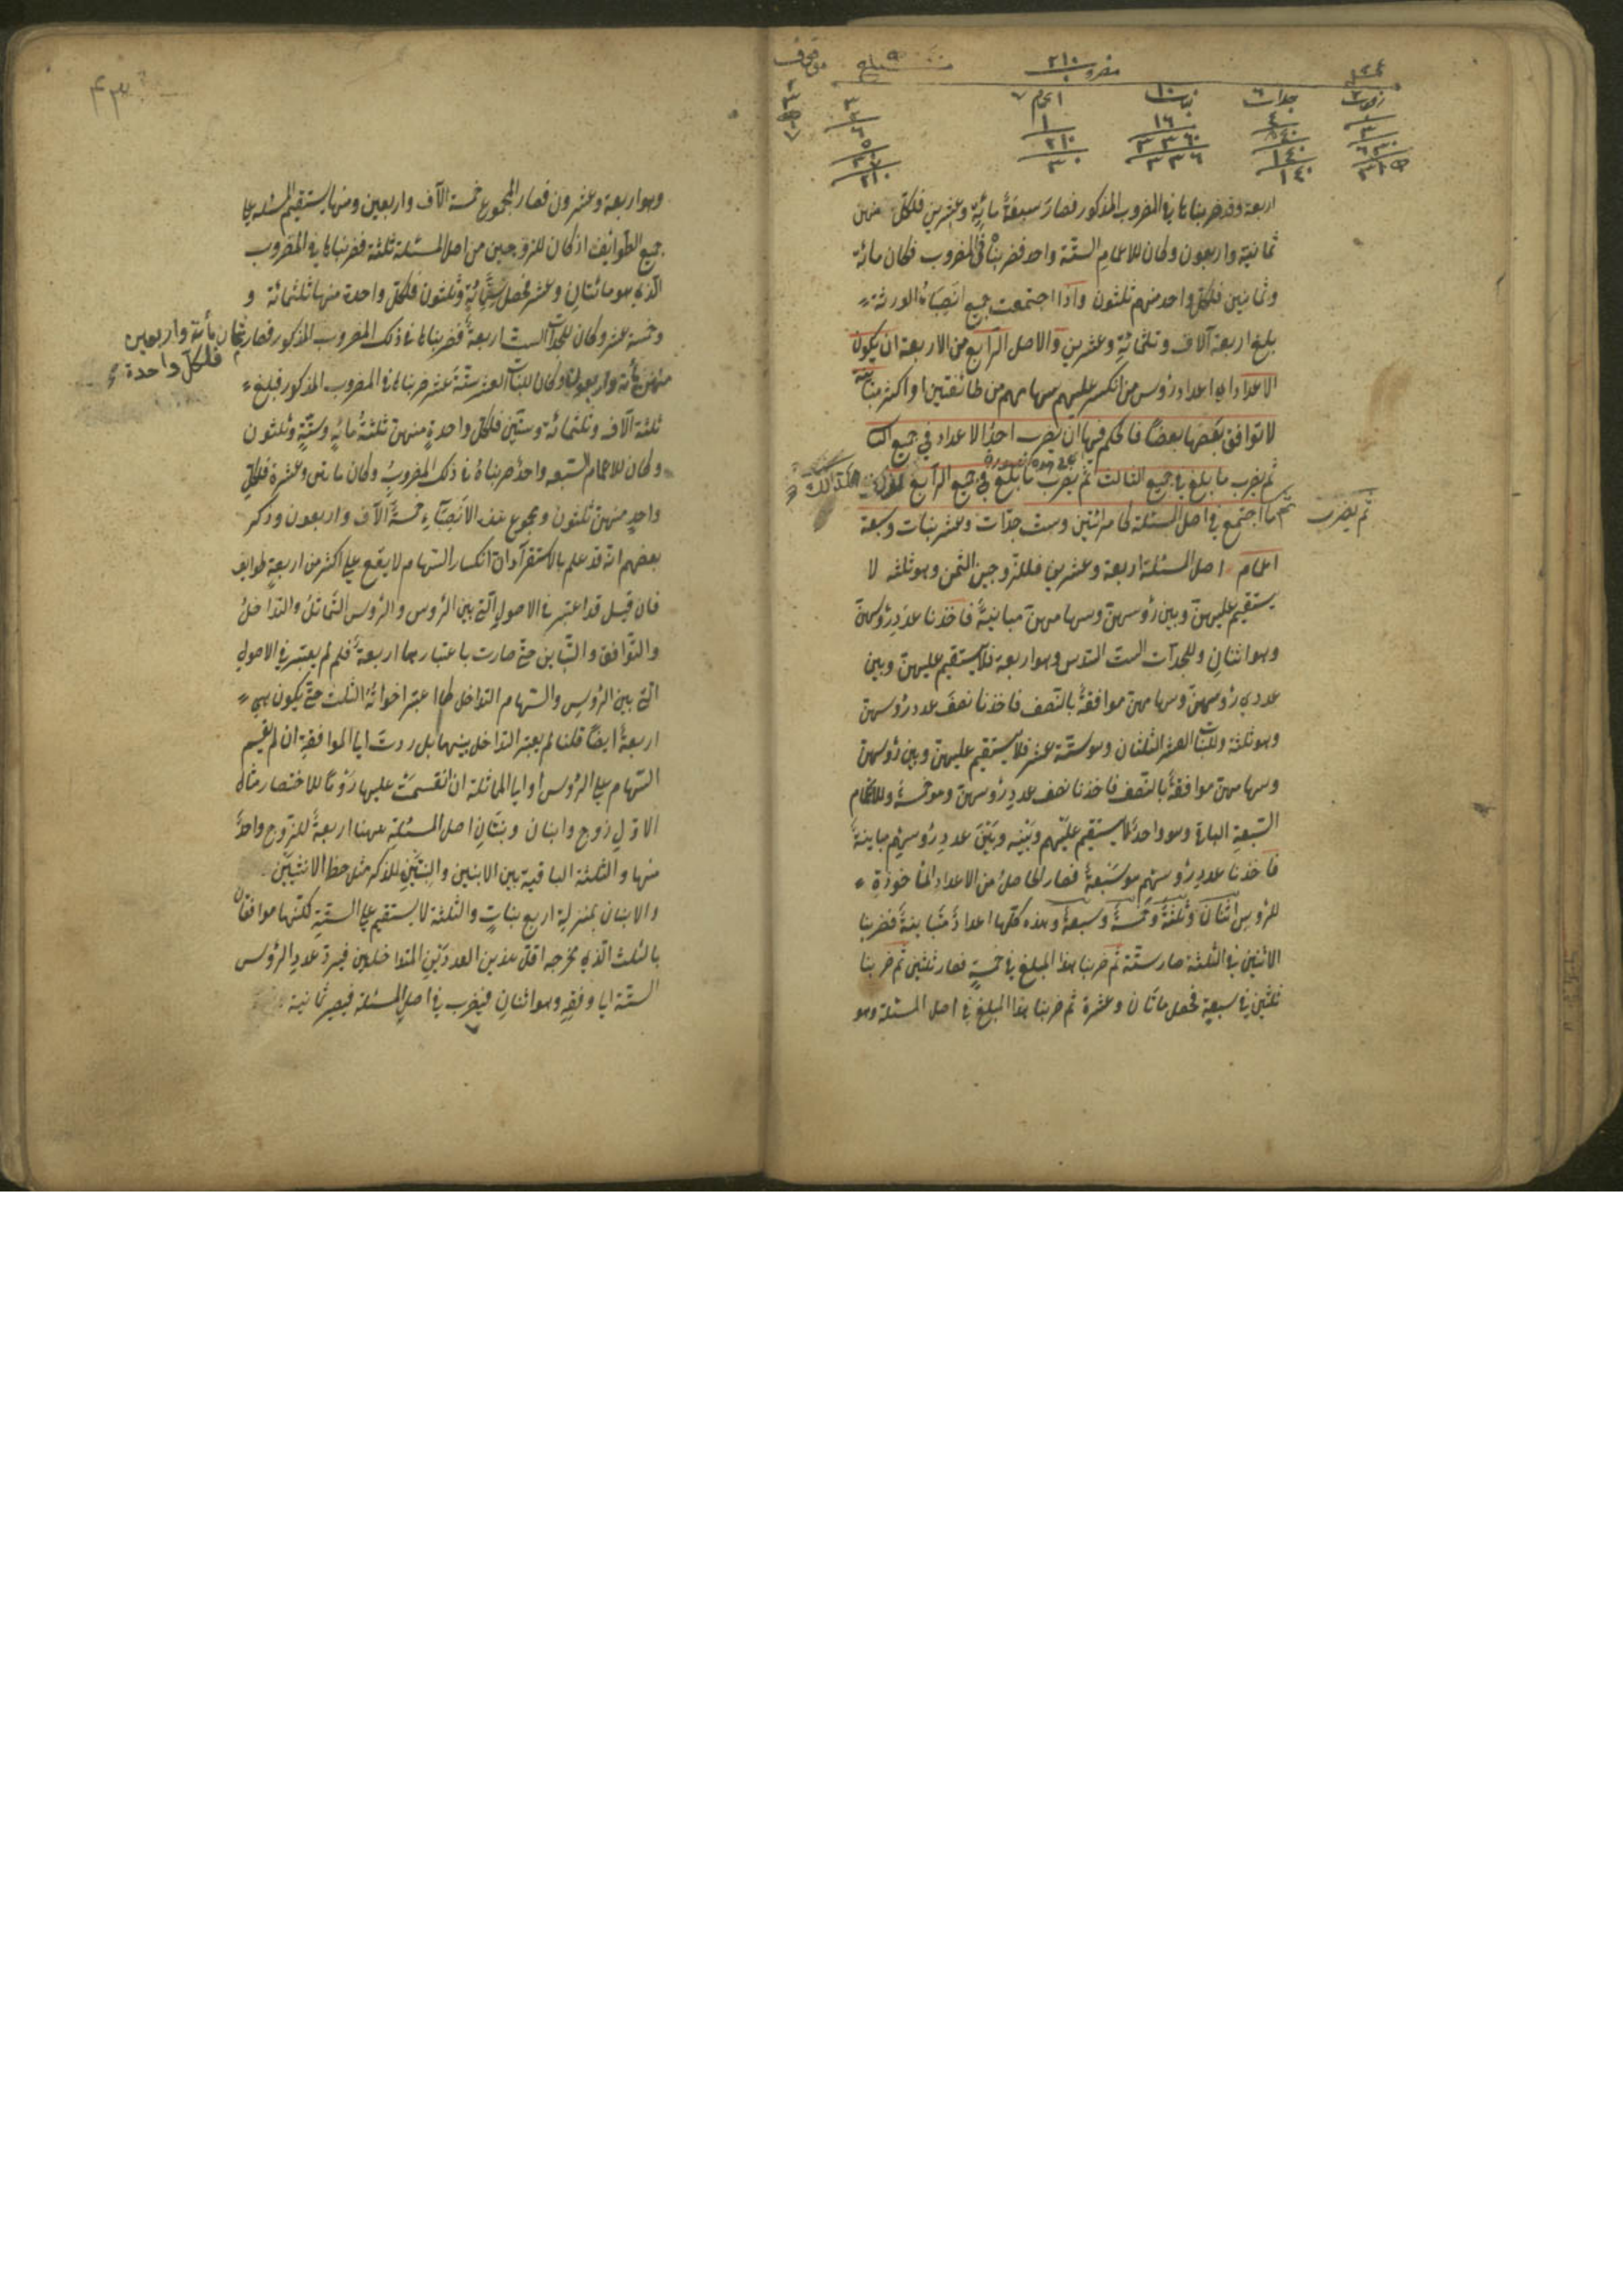 زوجات ٢ جدات ٦ بنات ١٠ اعمام ٧
مضروب ٢١٠
٣ ٤ ١٦ ١
٦٣٠ ٨٤٠ ٣٣٦٠ ٢١٠
٣١٥ ١٤٠ ٣٣٦ ٣٠
اربعة وقد ضربناها في المضروب المذكور فصار سبعة مائة وعشرين فلكل منهن
ثمانية واربعون وكان للاعمام الستة واحد فضربناه في المضروب فكان مائة
وثمانين فلكل واحد منهم ثلثون واذا اجتمعت جميع انصباء الورثة
بلغ اربعة آلاف وثلثمائة وعشرين والاصل الرابع من الاربعة ان يكون
الاعداد اي اعداد رؤس من انكسر عليهم سهامهم من طائفتين او اكثر متباينة
لا توافق بعضها بعضا فالحكم فيها ان يضرب احد الاعداد في جميع الثا
ثم يضرب ما بلغ في جميع الثالث ثم يضرب ما بلغ في جميع الرابع
ثم يضرب
ما اجتمع في اصل المسئلة كامرأتين وست جدات وعشر بنات وسبعة
اعمام اصل المسئلة اربعة وعشرين فللزوجين الثمن وهو ثلثة لا
يستقيم عليهن وبين رؤسهن وسهامهن مباينة فاخذنا عدد رؤسهن
وهو اثنان وللجدات الست السدس وهو اربعة فلا يستقيم عليهن وبين
عددي رؤسهن وسهامهن موافقة بالنصف فاخذنا نصف عدد رؤسهن
وهو ثلثة وللبنات العشر الثلثان وهو ستة عشر فلا يستقيم عليهن وبين رؤسهن
وسهامهن موافقة بالنصف فاخذنا نصف عدد رؤسهن وهو خمسة وللاعمام
السبعة الباقي وهو واحد لا يستقيم عليهم وبينه وبين عدد رؤسهم مباينة
فاخذنا عدد رؤسهم هو سبعة فصار الحاصل من الاعداد المأخوذة
للرؤس اثنان وثلثة وخمسة وسبعة وهذه كلها اعداد متباينة فضربنا
الاثنين في الثلثة صار ستة ثم ضربنا هذا المبلغ في خمسة فصار ثلثين ثم ضربنا
ثلثين في سبعة فحصل مائتان وعشرة ثم ضربنا هذا المبلغ في اصل المسئلة وهو
وهو اربعة وعشرون فصار المجموع خمسة الآف واربعين ومنها يستقيم المسئلة على
جميع الطوائف اذ كان للزوجين من اصل المسئلة ثلثة فضربناها في المضروب
الذي هو مائتان وعشر فحصل ستمائة وثلثون فلكل واحدة منها ثلثمائة و
وخمسة عشر وكان للجدات الست اربعة فضربناها في ذلك المضروب المذكور فصار ثمان مأئة واربعين
فلكل واحدة
منهن مائة واربعون وكان للبنات العشر ستة عشر ضربناها في المضروب المذكور فبلغ
ثلثة آلاف وثلثمائة وستين فلكل واحدة منهن ثلثة مائة وستة وثلثون
وكان للاعمام السبعة واحد ضربناه في ذلك المضروب وكان مائتين وعشرة فلكل
واحد منهن ثلثون ومجموع هذه الانصباء خمسة الآف واربعون وذكر
بعضهم انه قد علم بالاستقراء ان انكسار السهام لا يقع على اكثر من اربعة طوايف
فان قيل قد اعتبر في الاصول التي بين الرؤس والرؤس التماثل والتداخل
والتوافق والتباين حتى صارت باعتبارها اربعة فلم لم يعتبر في الاصول
التي بين الرؤس والسهام التداخل كما اعتبر اخواته الثلث حتى يكون هي
اربعة ايضا قلنا لم يعتبر التداخل بينهما بل ردت الى الموافقة ان لم تقسم
السهام على الرؤس او الى المماثلة ان انقسمت عليها روما للاختصار مثال
الاول زوج وابنان وبنتان اصل المسئلة ههنا اربعة للزوج واحد
منها والثلثة الباقية بين الابنين والبنتين للذكر مثل حظ الانثيين
والابنان بمنزلة اربع بنات والثلثة لا يستقيم على الستة لكنها موافقان
بالثلث الذي مخرجه اقل هذين العددين المتداخلين فيرد عدد الرؤس
الستة الى وفقه وهو اثنان فيضرب في اصل المسئلة فيصير ثمانية